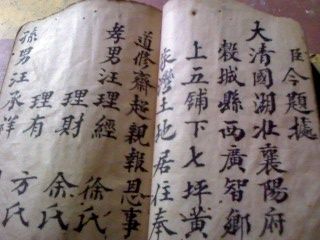 臣今題據
大清國湖北襄陽府
穀城縣西廣智鄉
上五舖下七坪黃
家灣土地居住奉
道修齋超親報恩事
孝男汪理經 徐氏
理財 余氏
孫男汪承祥 理有 方氏